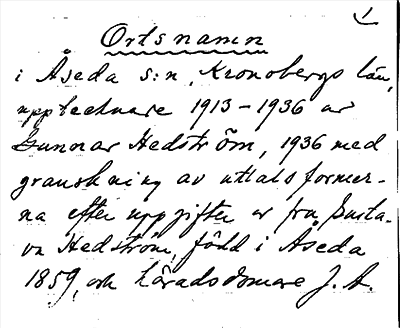 1
Ortsnamn
i Åseda s:n, Kronobergs län,
upptecknare 1913-1936 av
Gunnar Hedström, 1936 med
granskning av uttalsformer-
na efter uppgifter av fru Gusta-
va Hedström, född i Åseda
1859, och häradsdomare J. A.